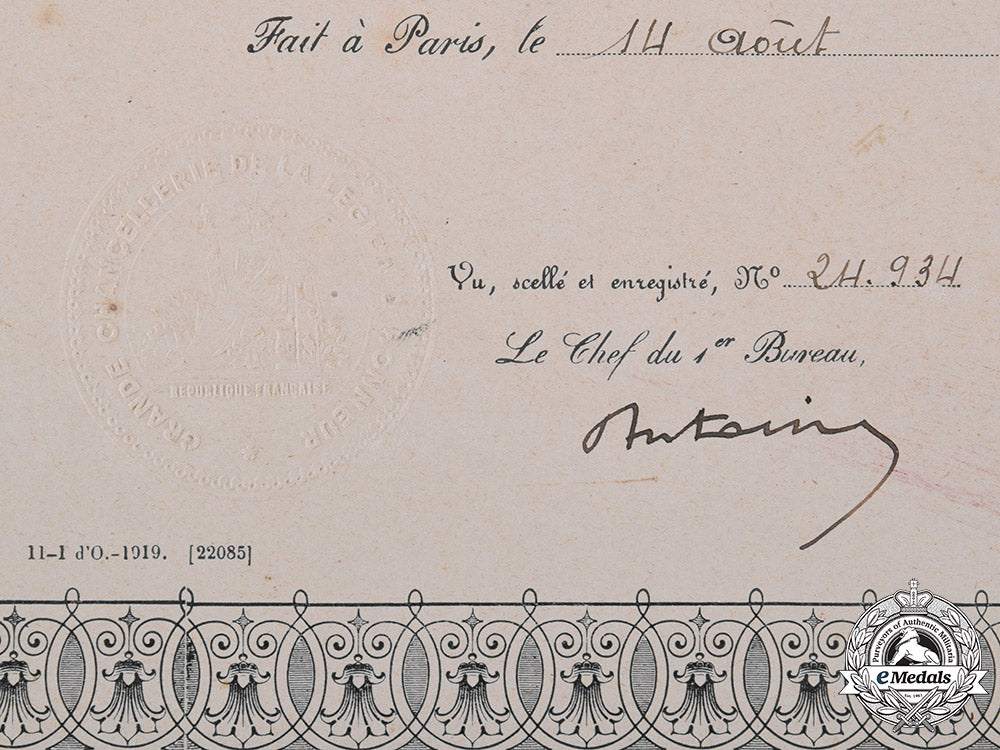 Fait à Paris, le 14 Août
GRANDE CHANCELLERIE DE LA LÉGION D'HONNEUR
RÉPUBLIQUE FRANÇAISE
Vu, scellé et enregistré, Nº 24.934
Le Chef du 1er Bureau,
Antoine
11-I d'O.-1919. [22085]
Purveyors of Authentic Militaria
eMedals